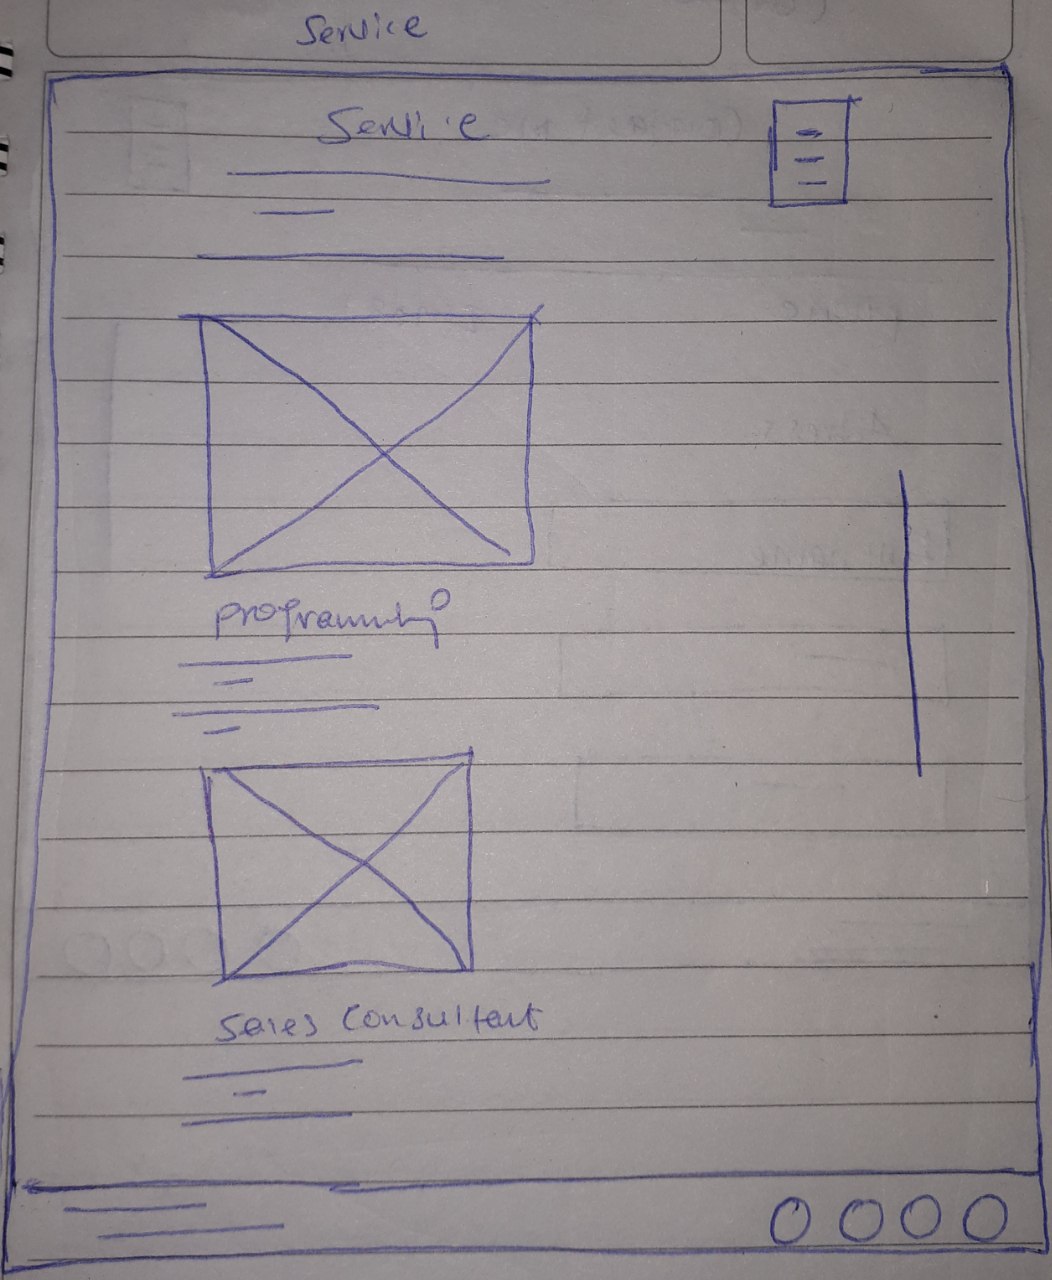 Service
Service
programming
Sales Consultant